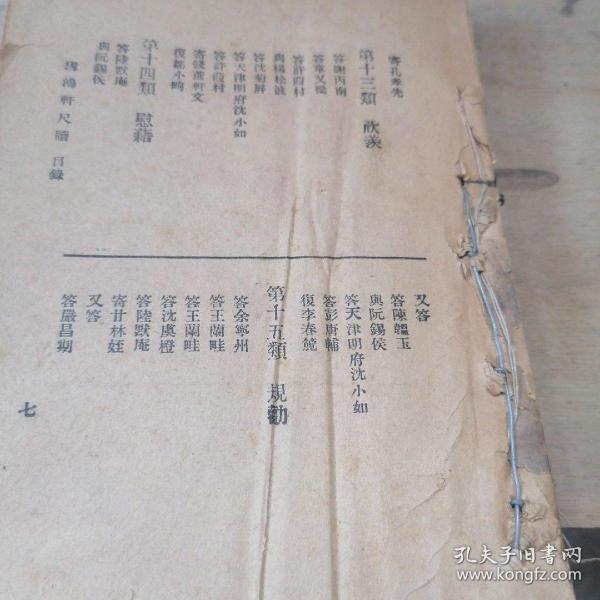 寄孔券先
第十三類　欣羨
答謝丙南
答章又梁
答許葭村
與楊松波
答沈菊屏
答天津明府沈小如
答許葭村
寄錢蕙軒文
復鄒小畸
第十四類　慰藉
答陸默庵
與阮錫侯
鴻軒尺牘　目錄
又答
答陳韞玉
與阮錫侯
答天津明府沈小如
答彭唐輔
復李春麓
第十五類　規勸
答余寧州
答王蘭畦
答王蘭畦
答沈虞橙
答陸默庵
寄甘林姪
又答
答嚴昌期
七
孔夫子旧書网
www.kongfz.com